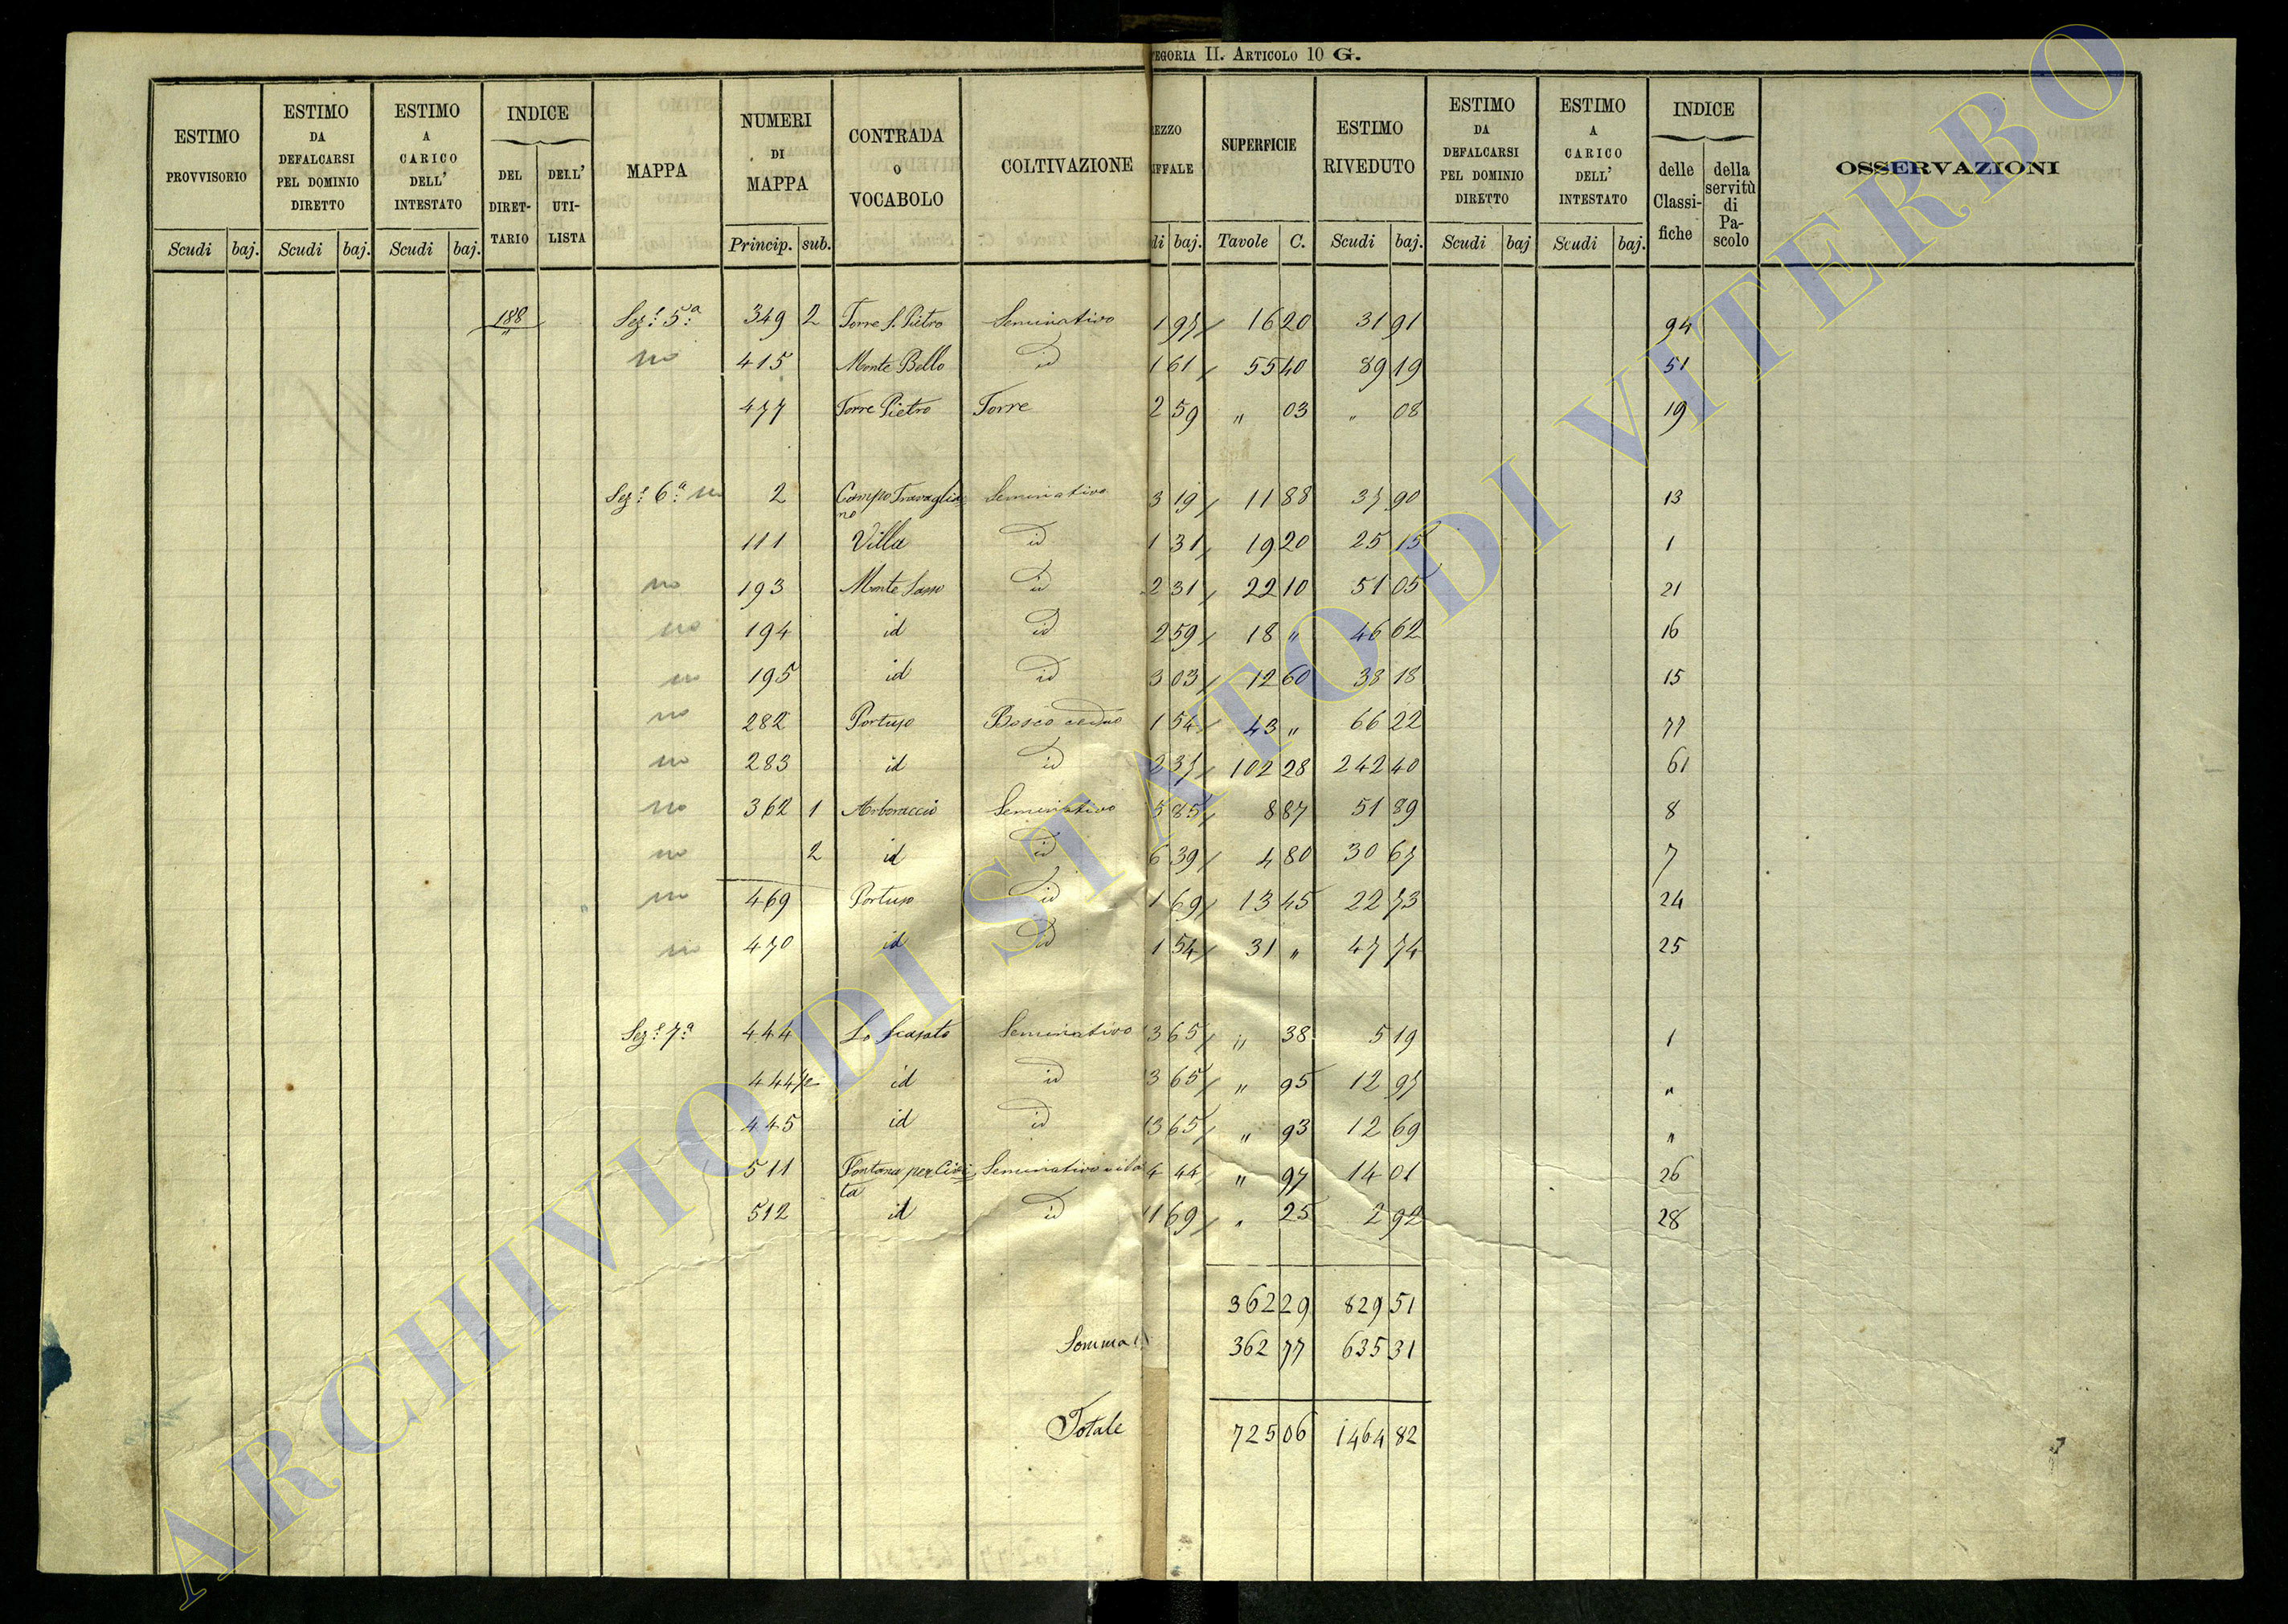 TEGORIA II. ARTICOLO 10 G.
ESTIMO PROVVISORIO | ESTIMO DA DEFALCARSI PEL DOMINIO DIRETTO | ESTIMO A CARICO DELL' INTESTATO | INDICE DEL DIRET-TARIO | DELL' UTI-LISTA | MAPPA | NUMERI DI MAPPA | CONTRADA O VOCABOLO | COLTIVAZIONE | EZZO IFFALE | SUPERFICIE | ESTIMO RIVEDUTO | ESTIMO DA DEFALCARSI PEL DOMINIO DIRETTO | ESTIMO A CARICO DELL' INTESTATO | INDICE delle Classi-fiche | della servitù di Pa-scolo | OSSERVAZIONI
Scudi baj. Scudi baj. Scudi baj. Princip. sub. di baj. Tavole C. Scudi baj. Scudi baj Scudi baj.
188 Sez.e 5a 349 2 Torre S. Pietro Seminativo 1 97 16 20 31 91 94
no 415 Monte Bello id 1 61 55 40 89 19 51
477 Torre Pietro Torre 2 59 " 03 " 08 19
Sez.e 6a no 2 Campo Travaglia=no Seminativo 3 19 11 88 37 90 13
111 Villa id 1 31 19 20 25 15 1
no 193 Monte Sasso id 2 31 22 10 51 05 21
no 194 id id 2 59 18 " 46 62 16
no 195 id id 3 03 12 60 38 18 15
no 282 Portuso Bosco ceduo 1 54 43 " 66 22 77
no 283 id id 2 37 102 28 242 40 61
no 362 1 Arboraccio Seminativo 5 85 8 87 51 89 8
no 2 id id 6 39 4 80 30 67 7
no 469 Portuso id 1 69 13 45 22 73 24
no 470 id id 1 54 31 " 47 74 25
Sez.e 7a 444 Lo Scasato Seminativo 13 65 " 38 5 19 1
444/2 id id 13 65 " 95 12 97 "
445 id id 13 65 " 93 12 69 "
511 Fontana per Civi=ta Seminativo vitato 4 44 " 97 14 01 26
512 id id 11 69 " 25 2 92 28
362 29 829 51
Somma 362 77 635 31
Totale 725 06 1464 82
ARCHIVIO DI STATO DI VITERBO